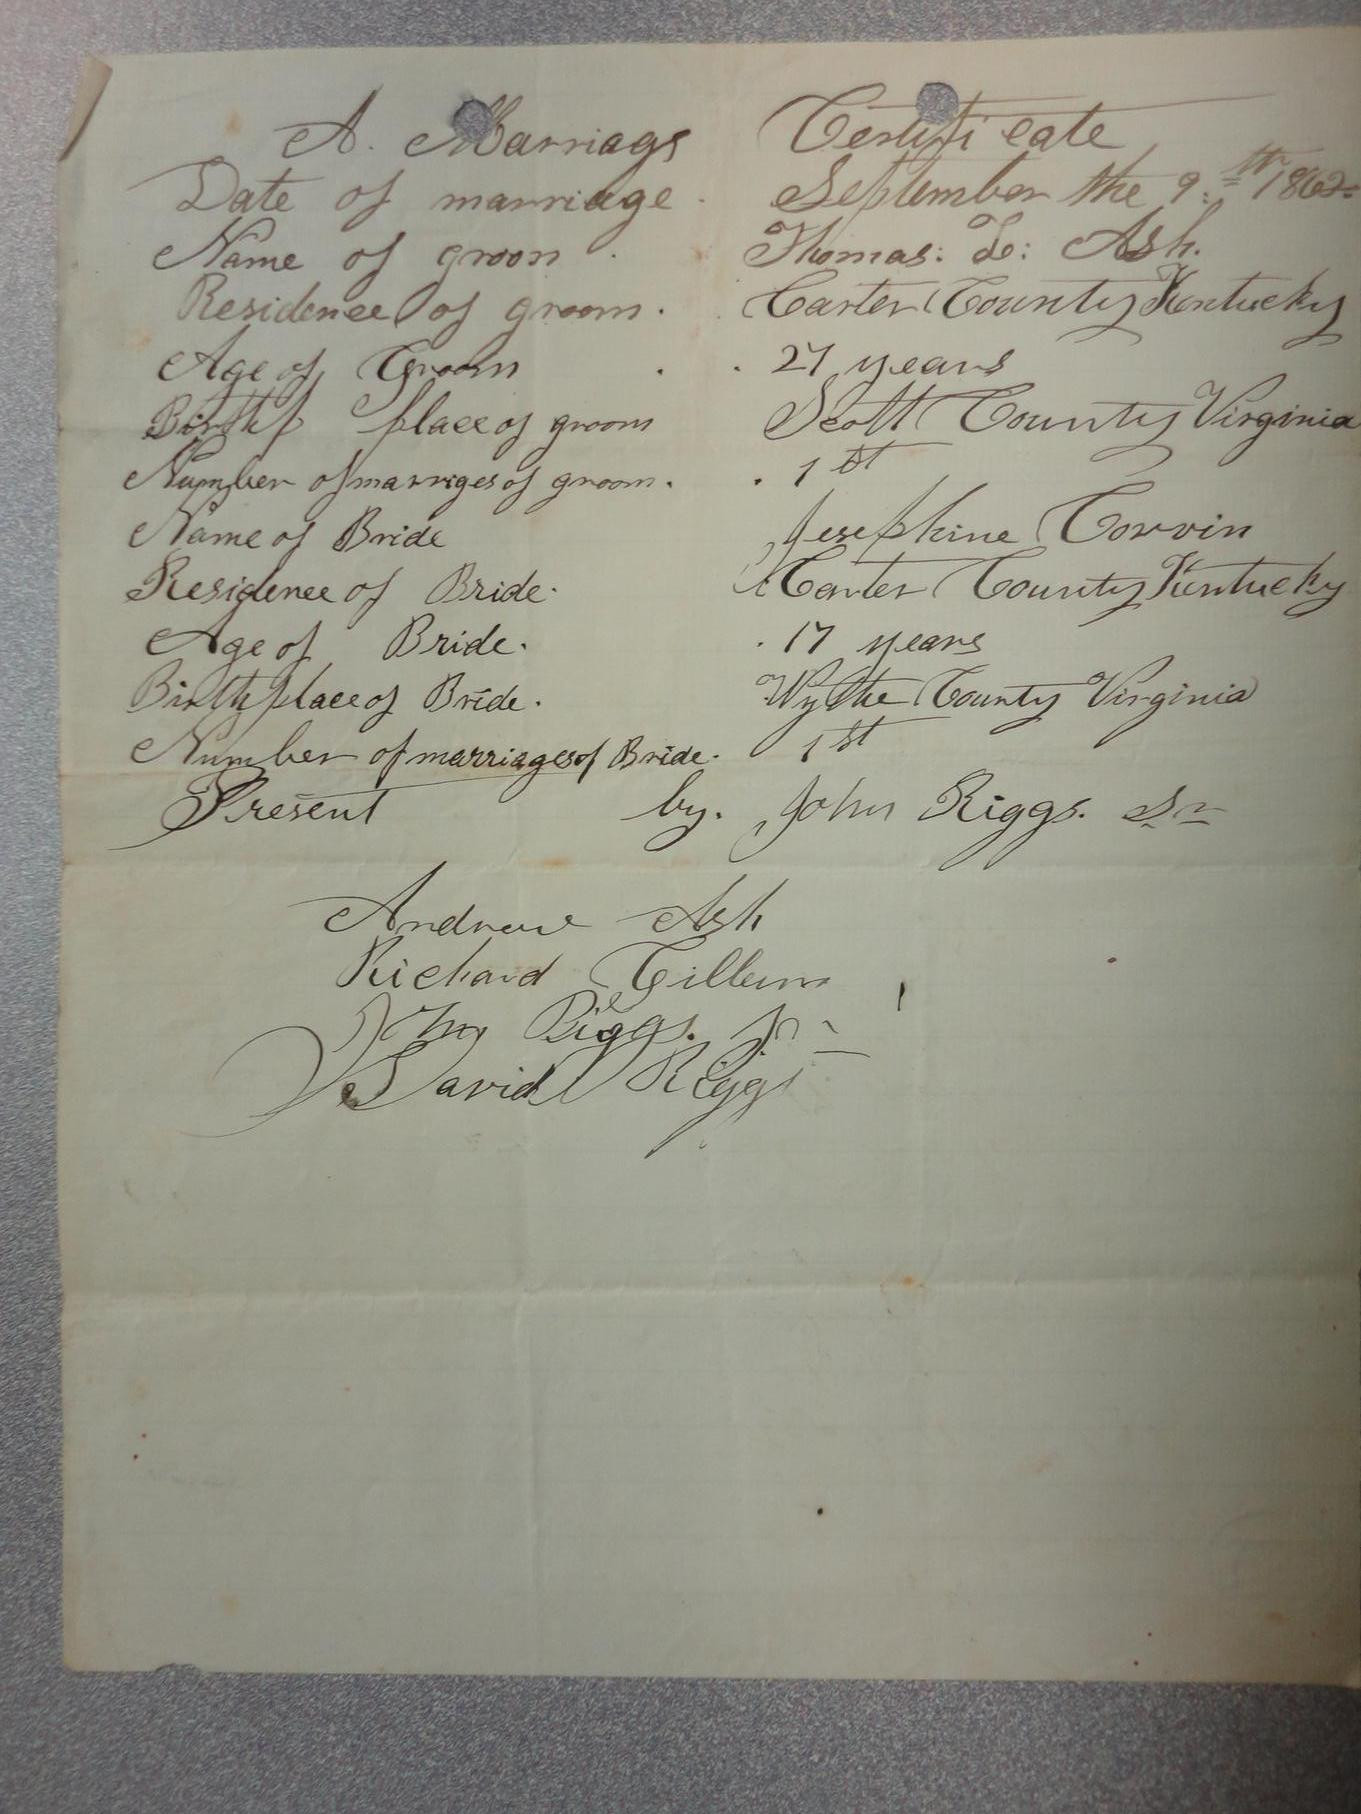 A. Marriage Certificate
Date of marriage . September the 9.th 1862
Name of groon . Thomas: L: Ash.
Residence of groom. Carter County Kentucky
Age of Groom . . 27 years
Birth place of groom Scott County Virginia
Number of marriges of groom. . 1st
Name of Bride Josephine Corvin
Residence of Bride. Carter County Kentucky
Age of Bride. . 17 years
Birth place of Bride. Wythe County Virginia
Number of marriages of Bride. 1st
Present by. John Riggs. Sr
Andrew Ash
Richard
John Riggs. Jr
David Riggs